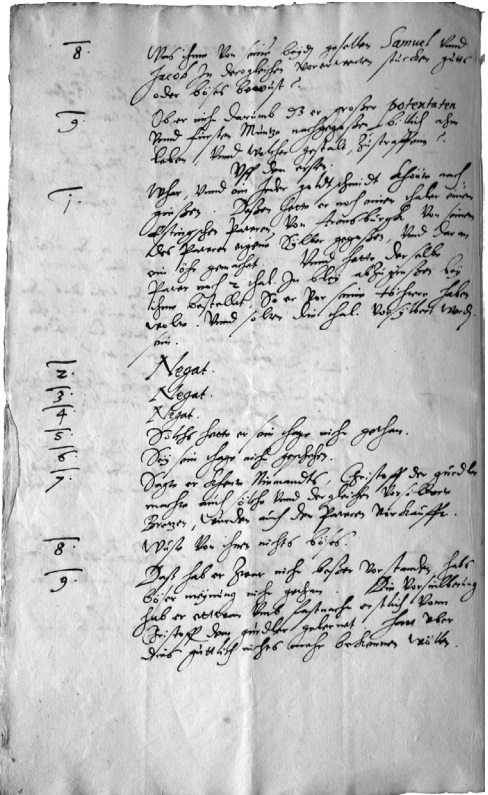 8. Was ihme von seine beyden gesellen Samuel vnnd
Jacob In dergleichen stücken guts
oder böses bewust?
9. Ob er nicht darumb dz er grosser potentaten
vnnd fürsten Müntz nachgegossen, billich ahm
leben, vnnd welcher gestalt, Zustraffenn?
Vff den ersten.
1. Whar, vnnd ein Jeder goldtschmidt könne nach
giessen. hette er noch einen thaler einem
Pawren, von von seinem
des Pawren eigene Silber gegossen, vnd daran
ein öhr gemacht. Vnnd hette derselbe
Pawr noch 2 thal. In bley abzugiessen bey
ihme bestellet, So er vor seine töchtere haben
wolte. Vnnd solten die thal. versilbert werden
2. Negat.
3. Negat.
4. Negat.
5. Solchs hette er sein tage nicht gethan.
6. Sey sein tage nicht geschehen.
7. Sagte er kenne Niemandts, Christoff der gürtler
machte auch solche vnnd dergleichen versilberte
, würden auch den Pawren verkaufft.
8. Wuste von ihnen nichts böses.
9. Dass hab er zwar nicht besser verstanden, habs
böser meynung nicht gethan. Die versilberung
hab er vmb fastnacht erstlich vom
Christoff dem gürtler gelernet. Hatt vber
dies gütlich nichts mehr bekennen wöllen.